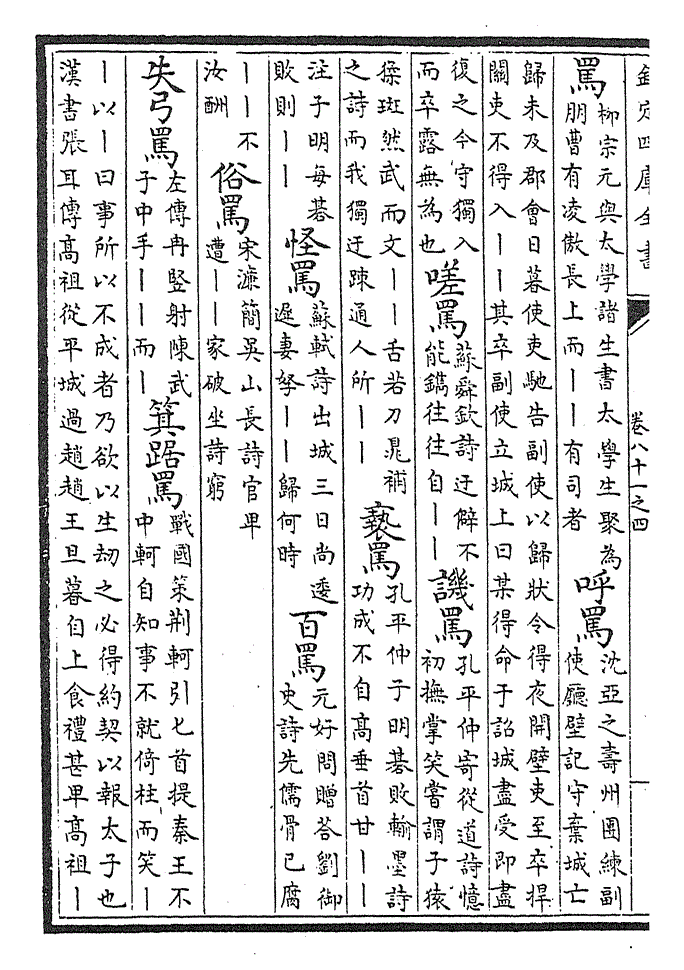 欽定四庫全書
卷八十一之四
罵
柳宗元與太學諸生書太學生聚為
朋曹有凌傲長上而丨丨有司者
呼罵
沈亞之壽州團練副
使廳壁記守棄城亡
歸未及郡會日暮使吏馳告副使以歸狀令得夜開壁吏至卒捍
關吏不得入丨丨其卒副使立城上曰某得命于詔城盡受即盡
復之今守獨入
而卒露無為也
嗟罵
蘇舜欽詩迂僻不
能鐫往往自丨丨
譏罵
孔平仲寄從道詩憶
初撫掌笑嘗謂子猿
猱斑然武而文丨丨舌若刀晁補
之詩而我獨迂疎通人所丨丨
褻罵
孔平仲子明碁敗輸墨詩
功成不自高垂首甘丨丨
注子明每碁
敗則丨丨
怪罵
蘇軾詩出城三日尚逶
遲妻孥丨丨歸何時
百罵
元好問贈答劉御
史詩先儒骨已腐
丨丨不
汝酬
俗罵
宋濂簡吳山長詩官卑
遭丨丨家破坐詩窮
失弓罵
左傳冉豎射陳武
子中手丨丨而丨
箕踞罵
戰國策荆軻引匕首提秦王不
中軻自知事不就倚柱而笑丨
丨以丨曰事所以不成者乃欲以生劫之必得約契以報太子也
漢書張耳傳高祖從平城過趙趙王旦暮自上食禮甚卑高祖丨